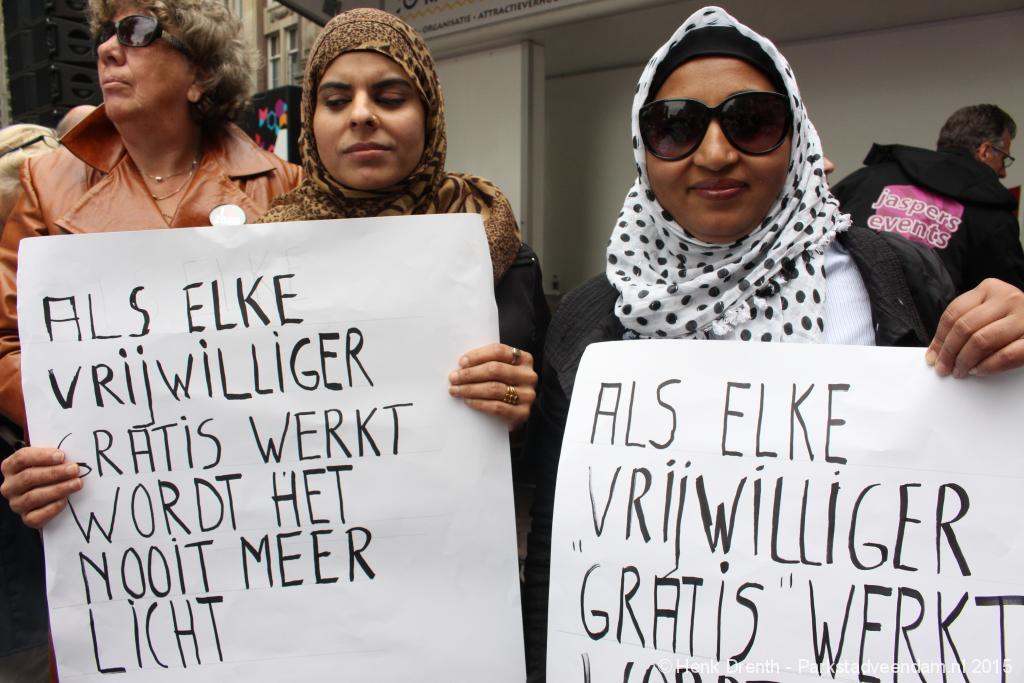 ORGANISATIE • ATTRACTIEVERHUUR
jaspers
events
ALS ELKE
VRIJWILLIGER
GRATIS WERKT
WORDT HET
NOOIT MEER
LICHT
ALS ELKE
VRIJWILLIGER
"GRATIS" WERKT
WORDT
© Henk Drenth - Parkstadveendam.nl 2015